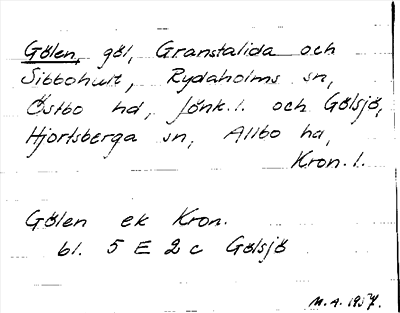 Gölen, göl, Granstalida och
Sibbohult, Rydaholms sn,
Östbo hd, Jönk.l. och Gölsjö,
Hjortsberga sn, Allbo hd,
Kron.l.
Gölen ek Kron.
bl. 5 E 2 c Gölsjö
M.A. 1957.